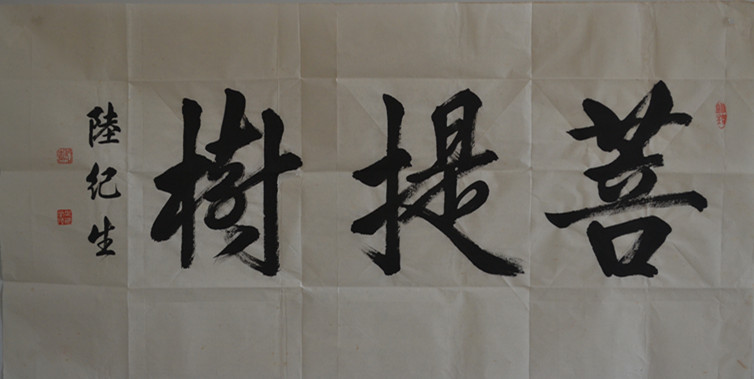 菩提樹
陸紀生